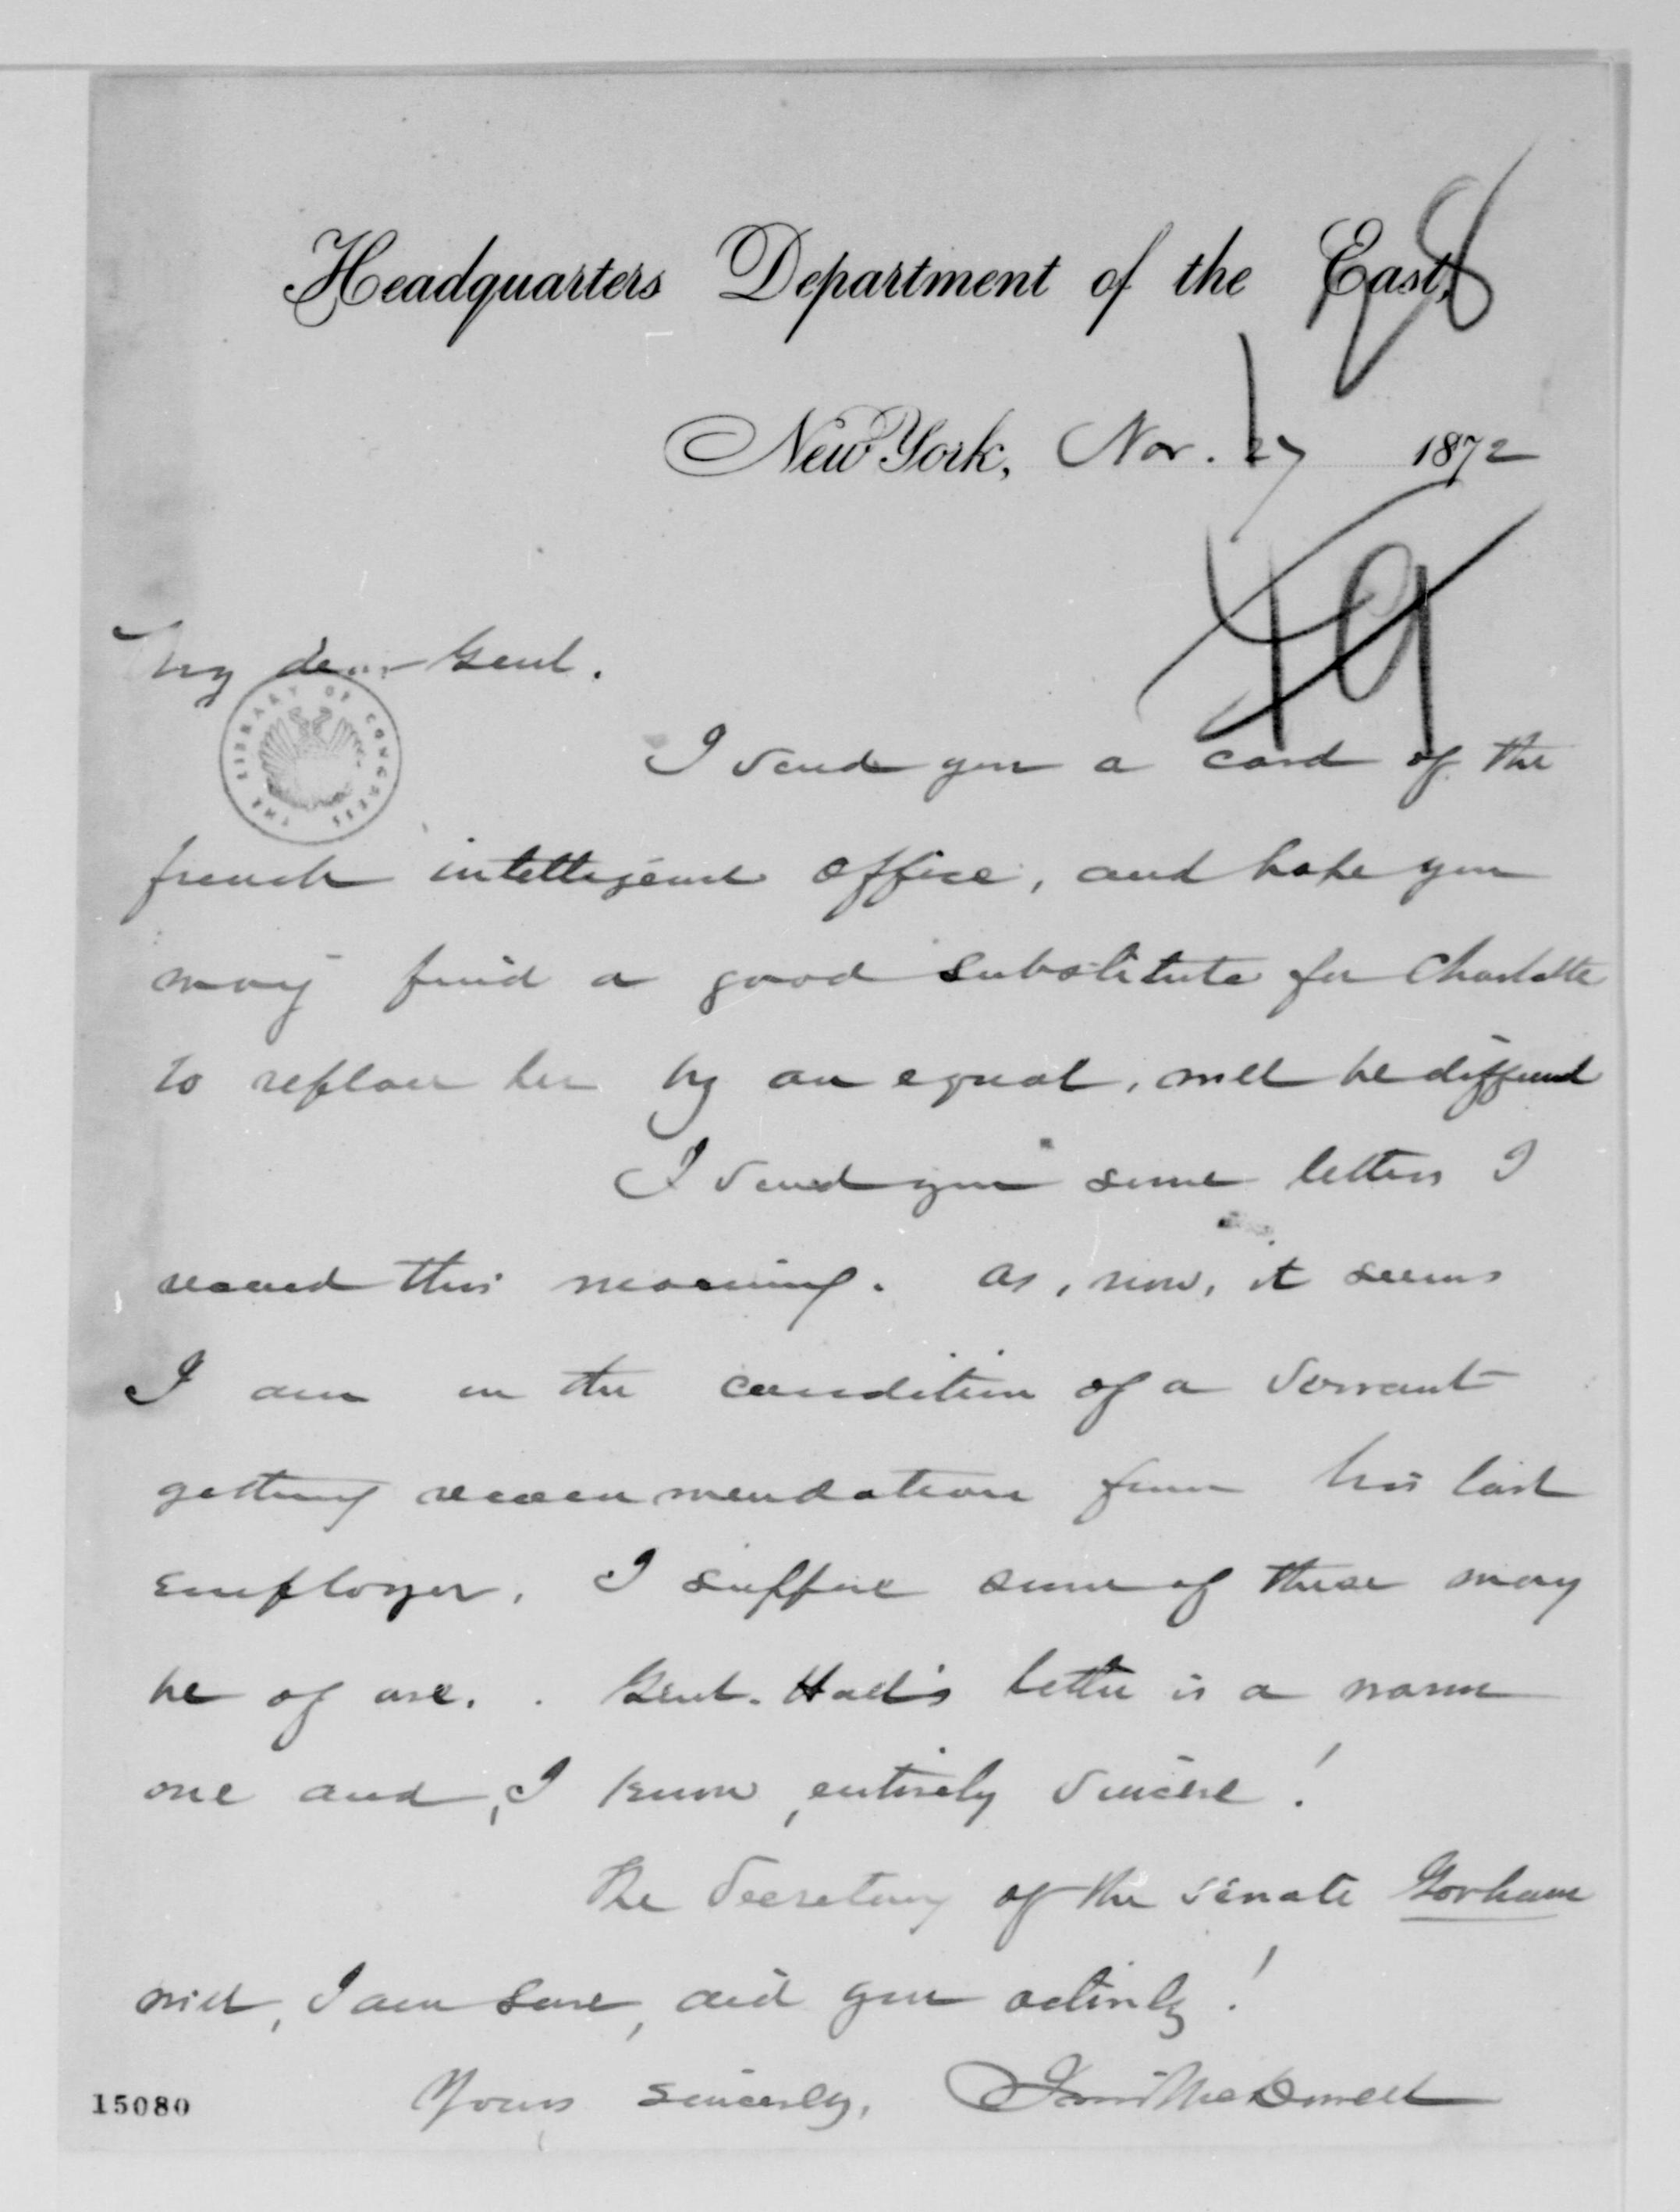 Headquarters Department of the East,
8
New York, Nov. 27 1872
49
My dear Genl.
THE LIBRARY OF CONGRESS
I send you a card of the
french intelligence office, and hope you
may find a good substitute for Charlotte
to replace her by an equal, will be
I send you some letters I
received this morning. As, now, it seems
I am in the condition of a servant
getting recommendations from his last
employer. I suppose some of these may
be of use. Genl. letter is a warm
one and, I know, entirely sincere!
The Secretary of the Senate Gorham
will, I am sure, aid you actively!
Yours sincerely, Irvin McDowell
15080